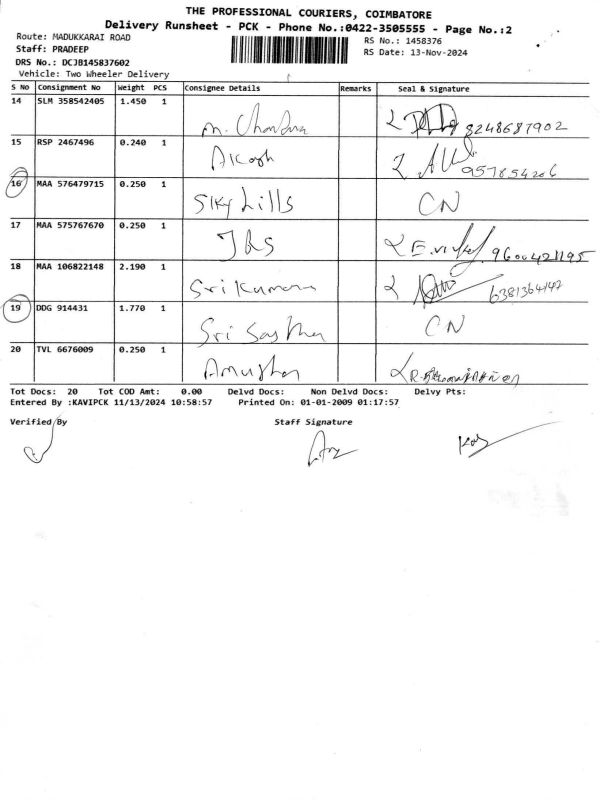 THE PROFESSIONAL COURIERS, COIMBATORE
Delivery Runsheet - PCK - Phone No.:0422-3505555 - Page No.:2
Route: MADUKKARAI ROAD RS No.: 1458376
Staff: PRADEEP RS Date: 13-Nov-2024
DRS No.: DCJB145837602
Vehicle: Two Wheeler Delivery
S No Consignment No Weight PCS Consignee Details Remarks Seal & Signature
14 SLM 358542405 1.450 1 M. Chandra 8248687902
15 RSP 2467496 0.240 1 Akash 957654206
16 MAA 576479715 0.250 1 Sky Lills CN
17 MAA 575767670 0.250 1 9600421195
18 MAA 106822148 2.190 1 Sri Kumara 6381364142
19 DDG 914431 1.770 1 Sri Sastha CN
20 TVL 6676009 0.250 1
Tot Docs: 20 Tot COD Amt: 0.00 Delvd Docs: Non Delvd Docs: Delvy Pts:
Entered By :KAVIPCK 11/13/2024 10:58:57 Printed On: 01-01-2009 01:17:57
Verified By Staff Signature